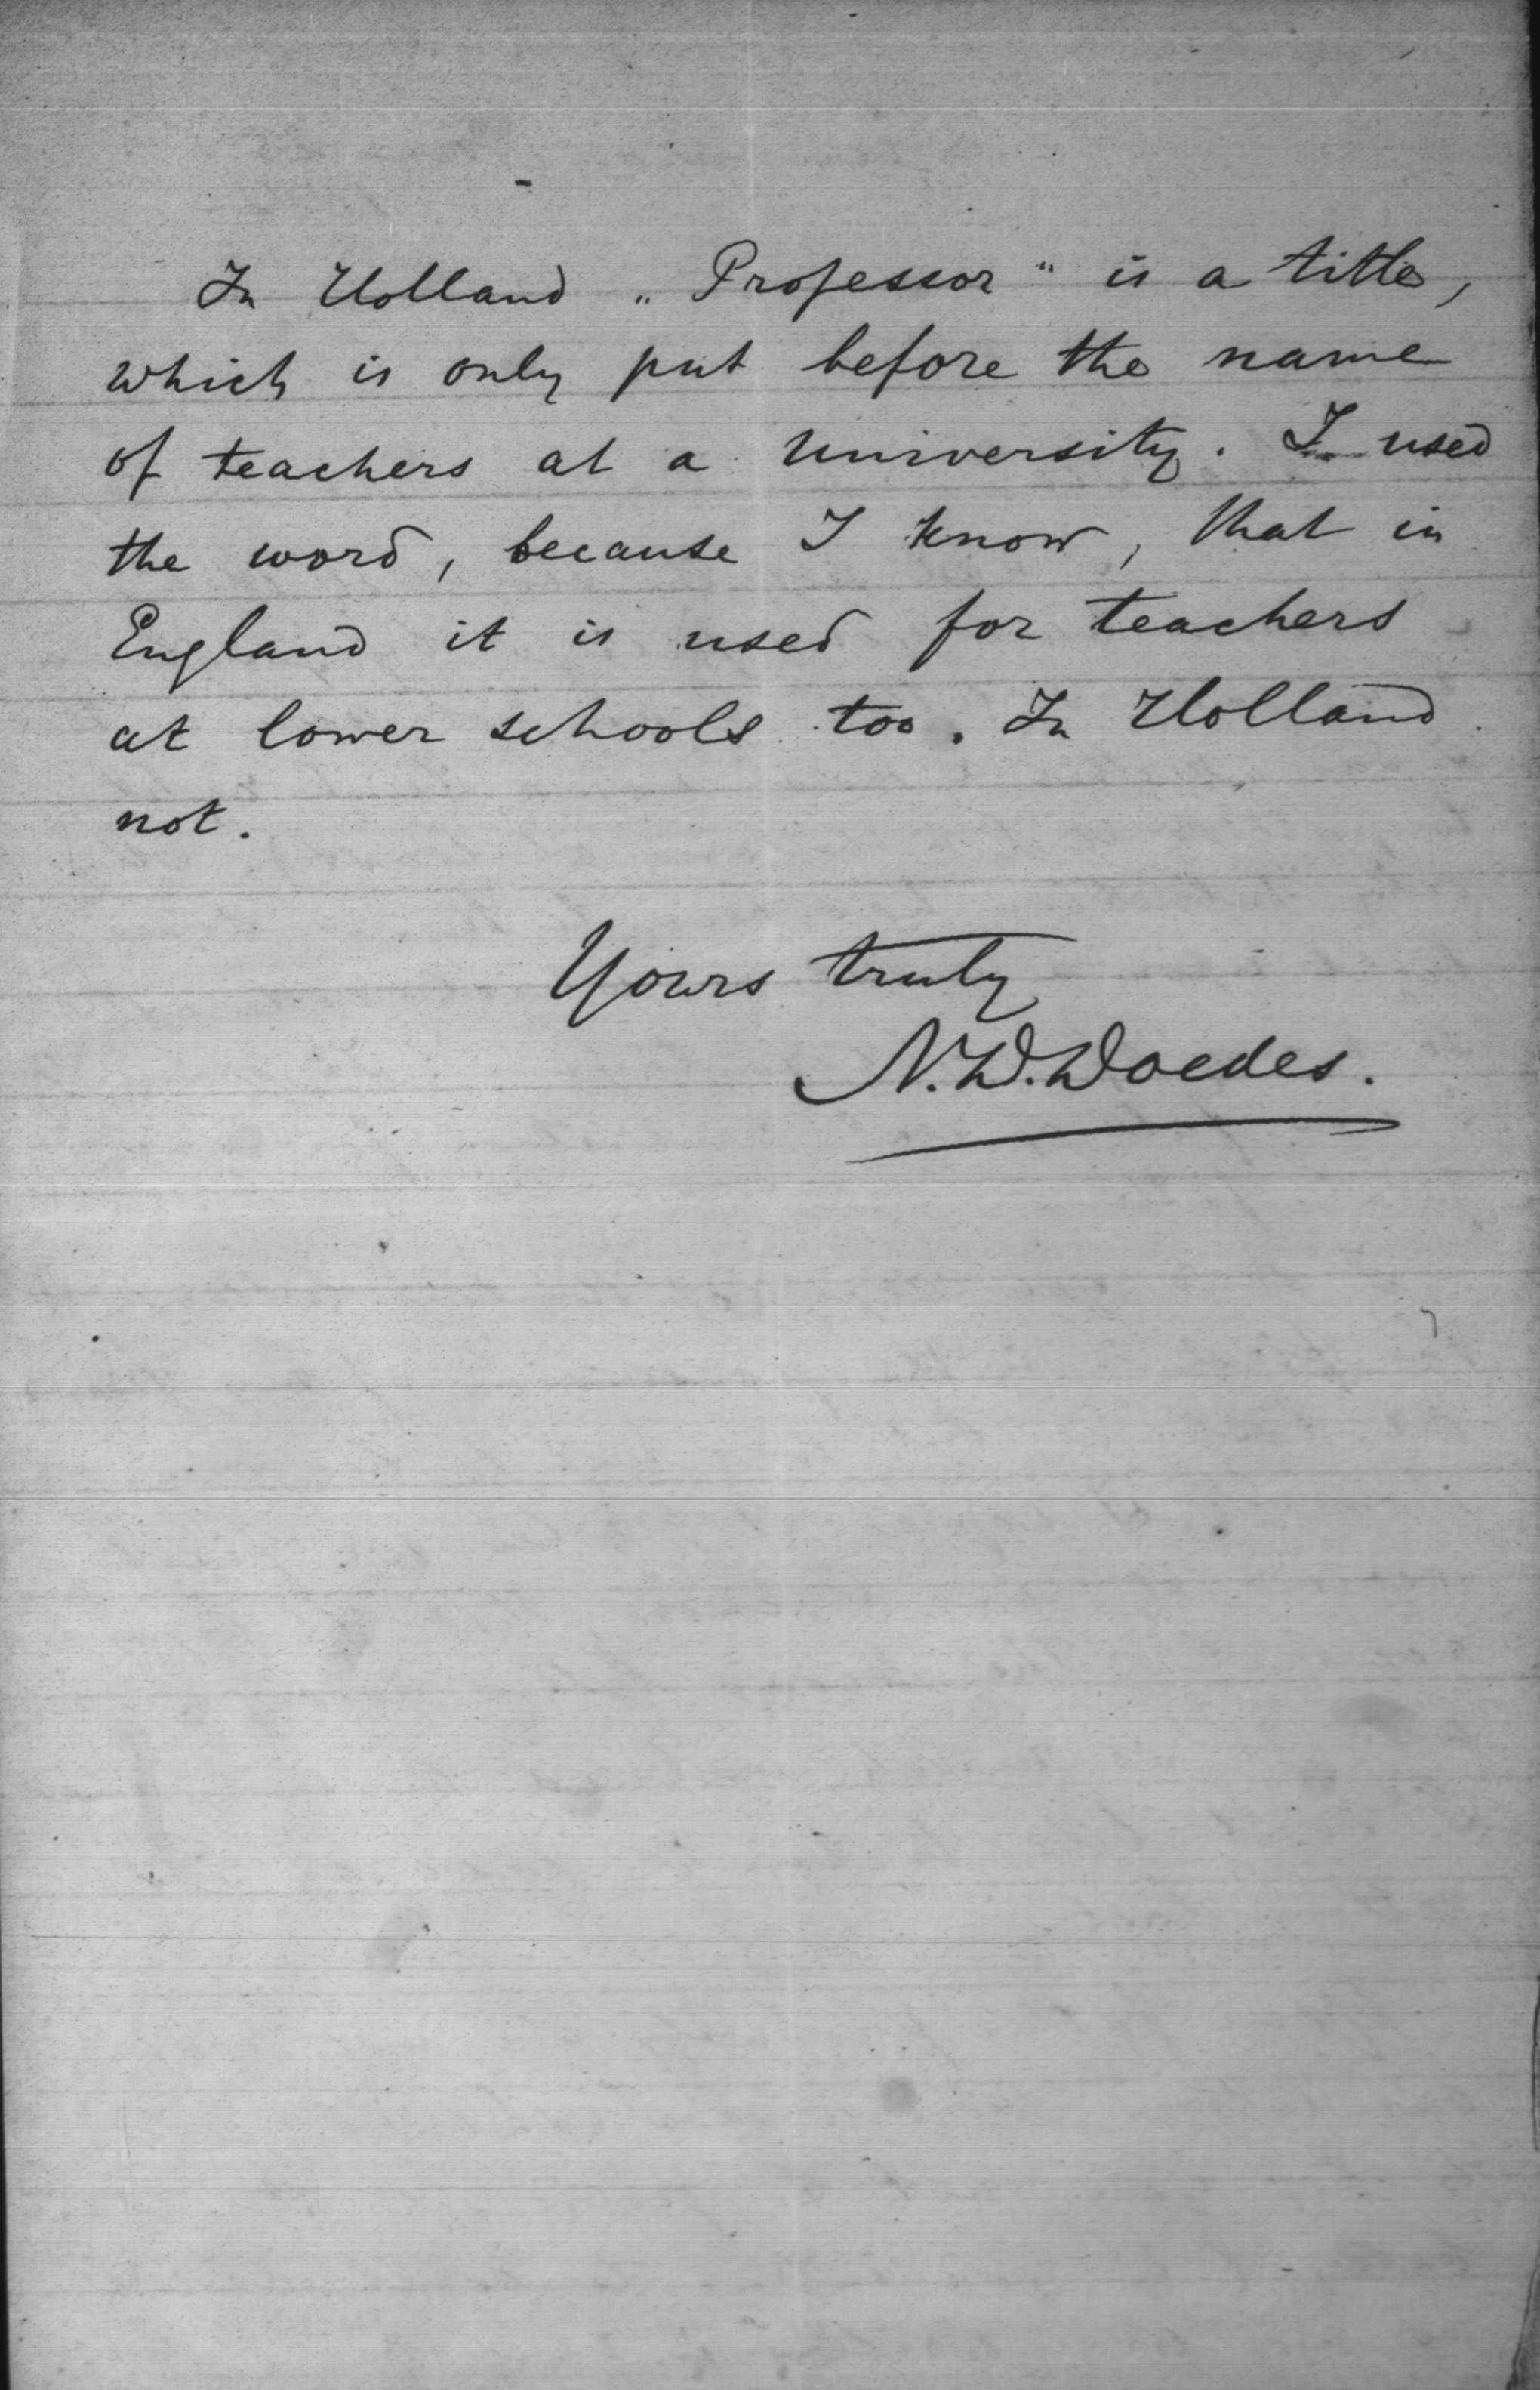 In Holland „Professor" is a title,
which is only put before the name
of teachers at a university. I used
the word, because I know, that in
England it is used for teachers
at lower schools too. In Holland
not.
Yours truly
N.D.Doedes.